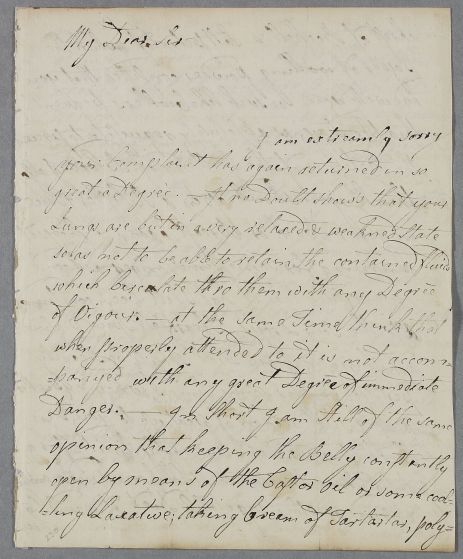 My Dear Sir
I am extreamly sorry
your Complaint has again returned in so
great a Degree. — It no Doubt shows that your
Lungs are but in a very relaxed & weakned State
so as not to be able to retain the contained fluid
which circulate thro them with any Degree
of Vigour. — at the same Time think that
when properly attended to it is not accom=
=panyed with any great Degree of immediate
Danger. — In short I am still of the same
opinion that keeping the Belly constantly
open by means of the Castor Oil or some cool=
=ling Laxative; taking Cream of Tartar, poly=